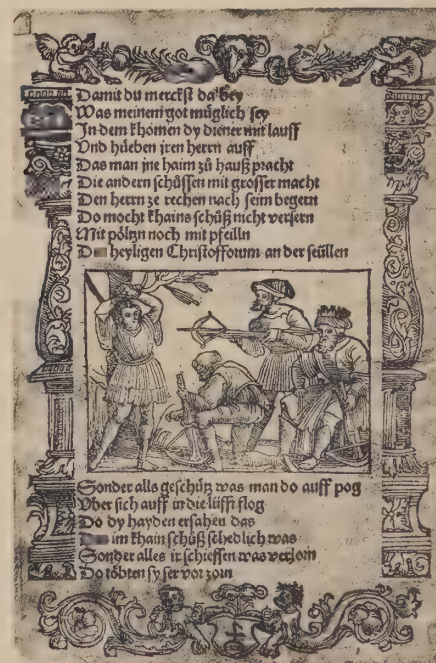 Damit du merckst da bey
Was meinem got müglich sey
In dem khomen dy diener mit lauff
Vnd hüeben jren herrn auff
Das man jne haim zů hauß pracht
Die andern schüssen mit grosser macht
Den herrn ze rechen nach seim begern
Do mocht khains schüß nicht versern
Mit pöltzn noch mit pfeilln
heyligen Christofforum an der seüllen
Sonder alls geschütz was man do auff pog
Vber sich auff in die lüfft flog
Do dy hayden ersahen das
im khain schüß schedlich was
Sonder alles ir schieffen was verlorn
Do tobten sy ser vor zorn